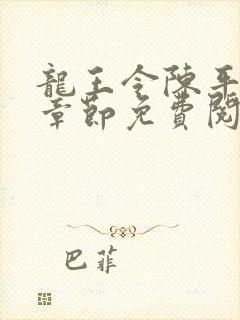 龍王令陳平
章節免費閱
巴菲